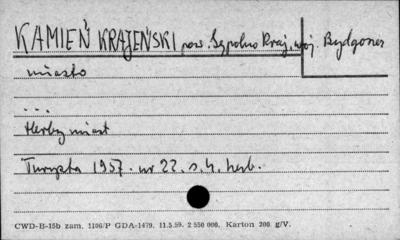 KAMIEŃ KRAJEŃSKI pow. Sępolno Kraj., woj. Bydgoszcz
miasto
...
Herby miast
Turysta 1957. nr 22. s. 4. herb.
CWD-B-15b zam. 1106/P GDA-1479. 11.5.59. 2 550 000. Karton 200 g/V.